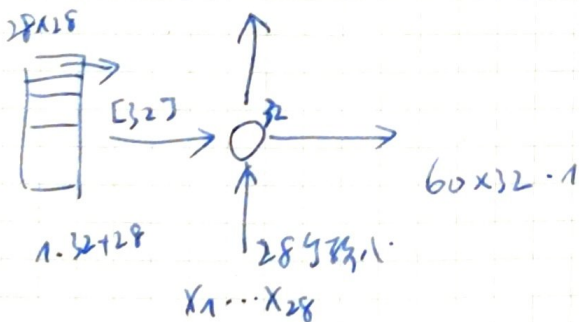 28×28
[32]
32
60×32·1
1·32+28
28
X1...X28